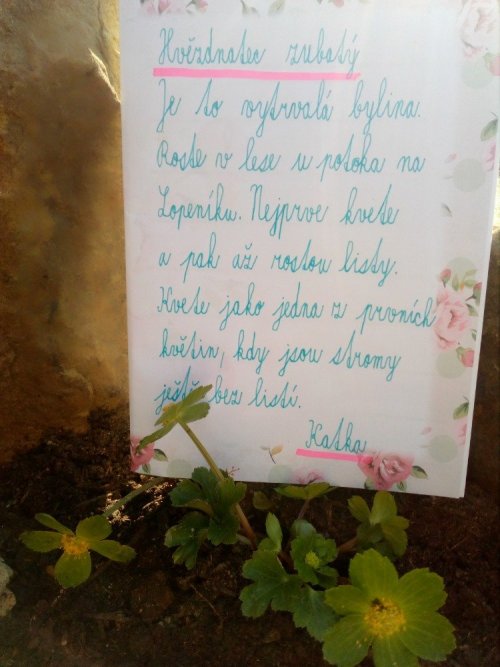 Hvězdnatec zubatý
Je to vytrvalá bylina.
Roste v lese u potoka na
Lopeníku. Nejprve kvete
a pak až rostou listy.
Kvete jako jedna z prvních
květin, kdy jsou stromy
ještě bez listí.
Katka